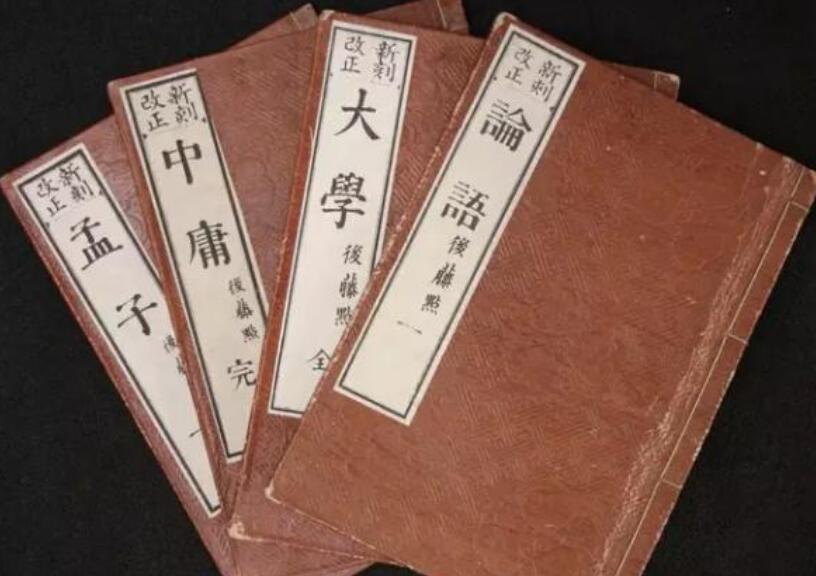 新刻
改正
論語後藤點 一
新刻
改正
大學後藤點 全
新刻
改正
中庸後藤點 完
新刻
改正
孟子後
一